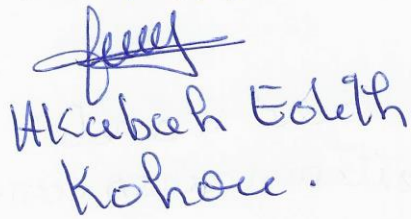 Akabah Edith
Kohou.